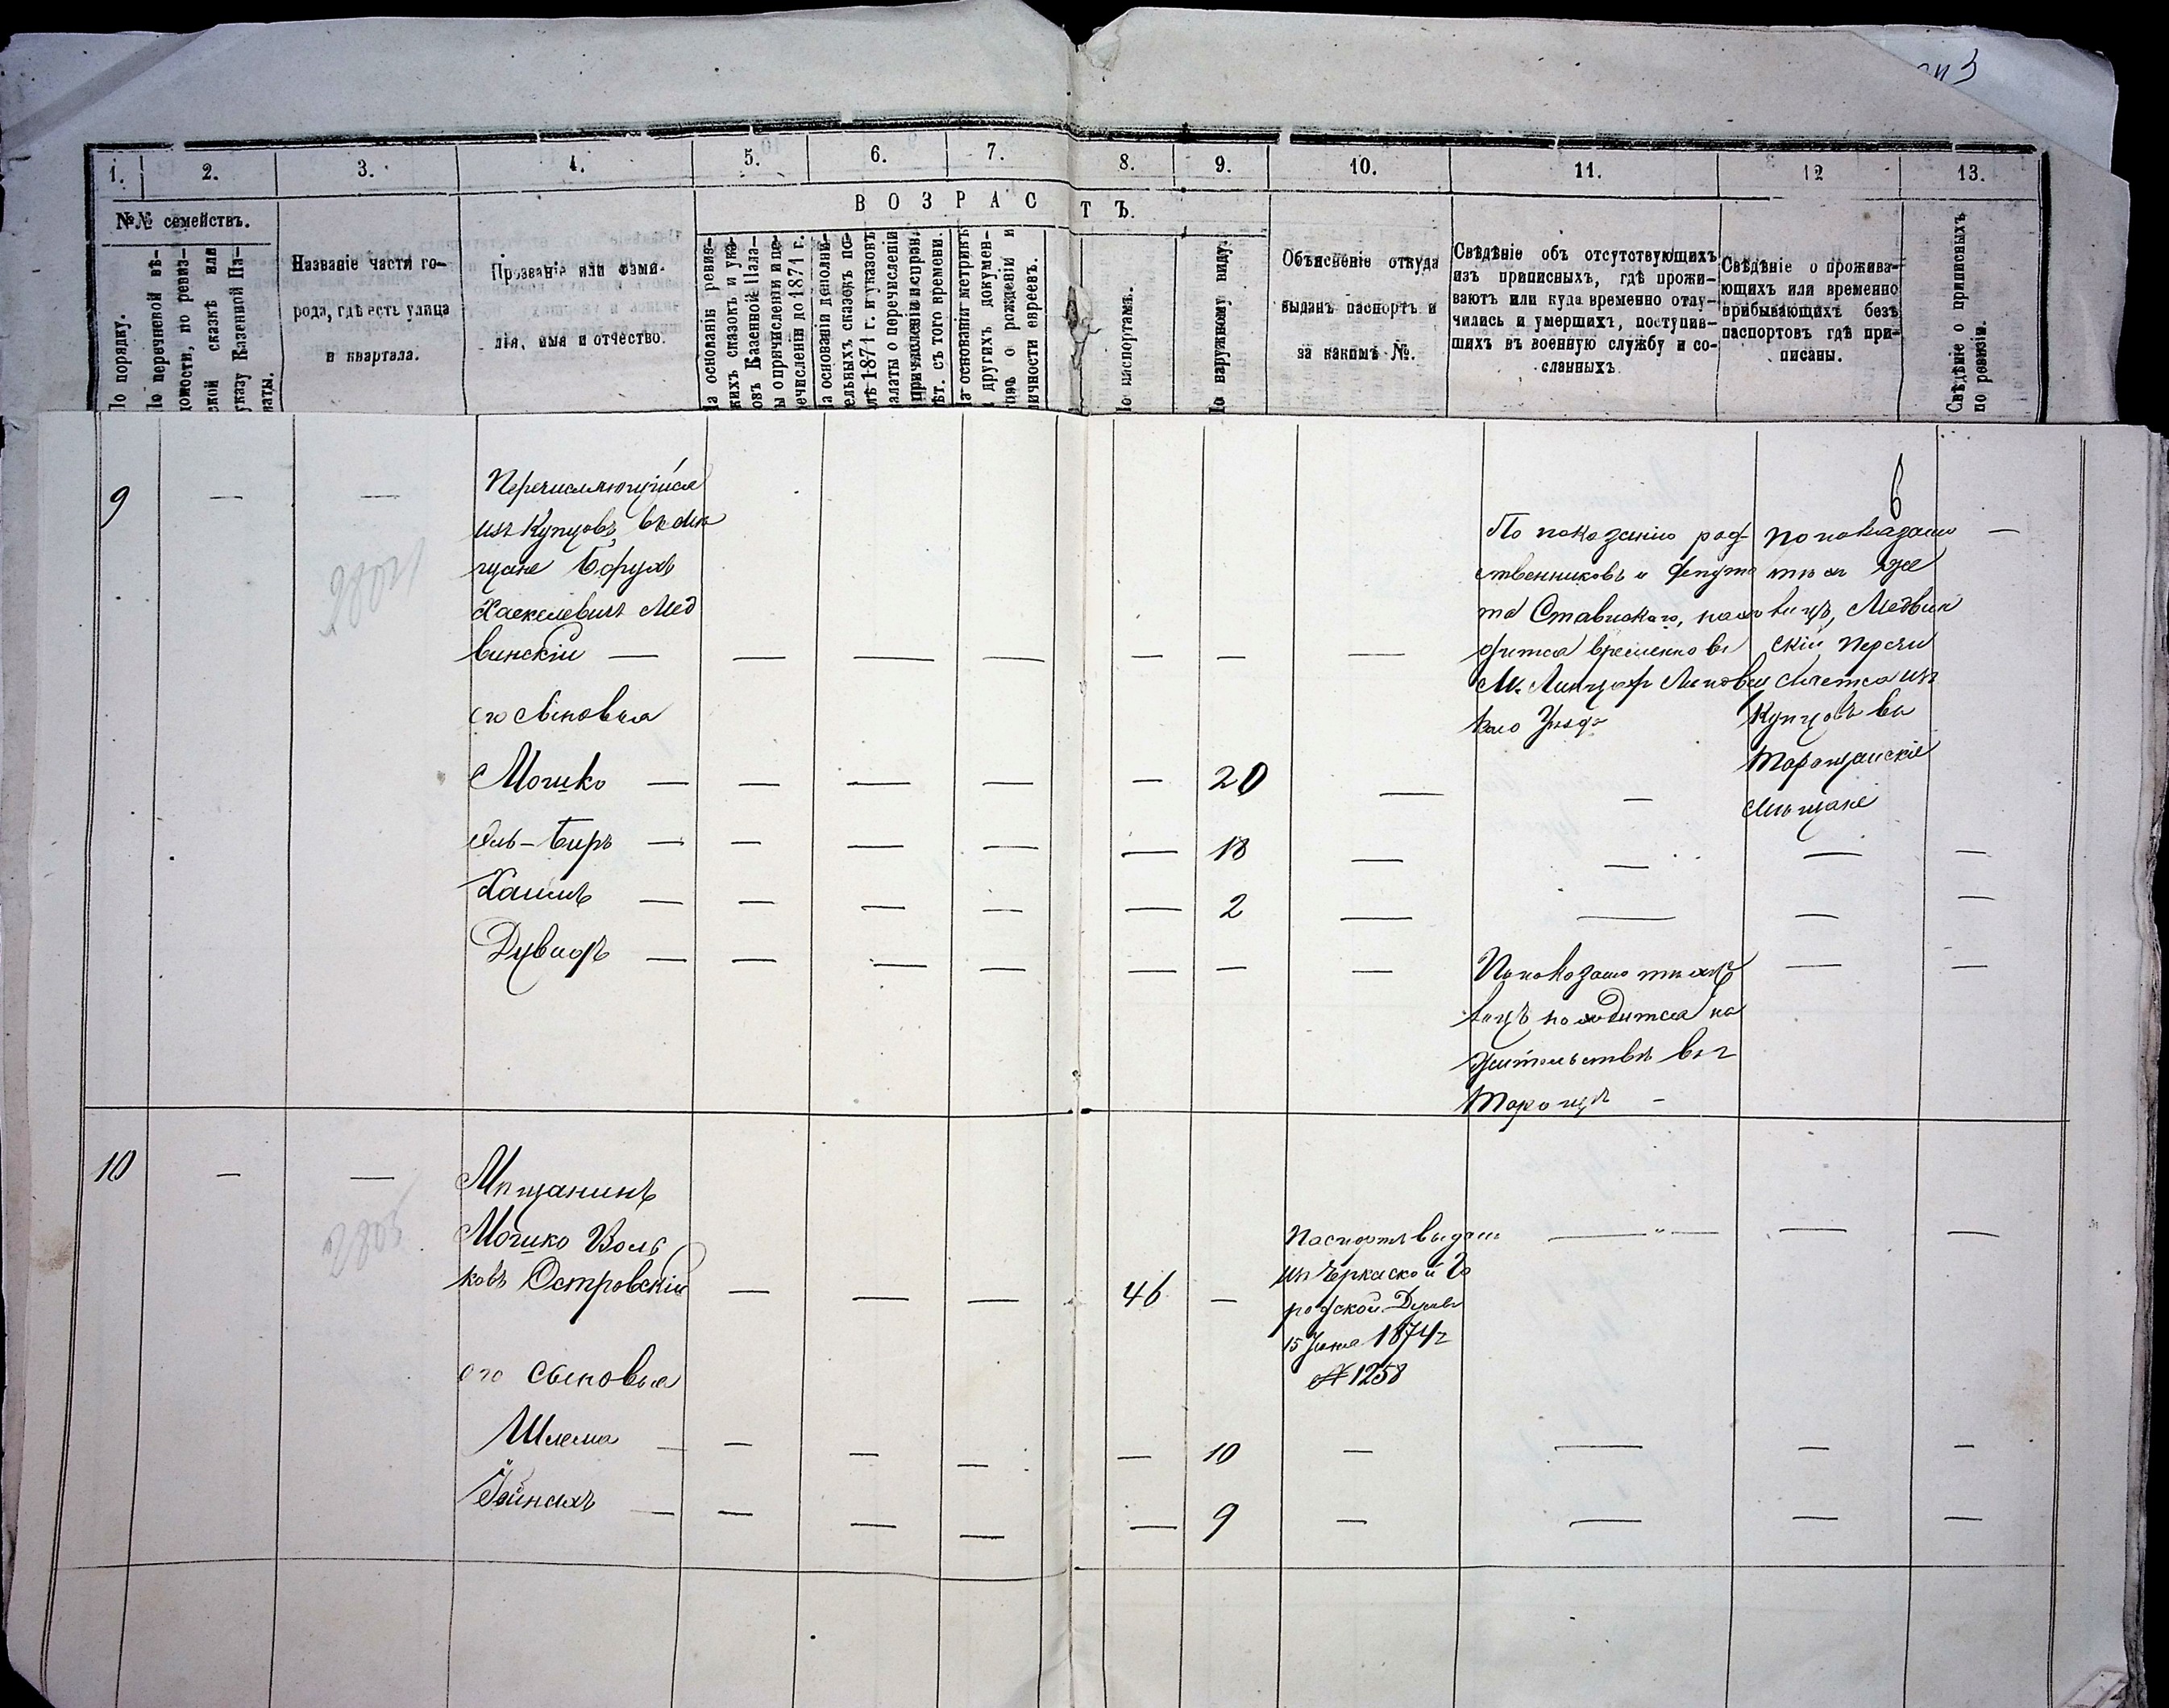 1.
2.
3.
4.
5.
6.
7.
8.
9.
10.
11.
12
13.
№№ семействъ.
ВОЗРАСТЪ.
По порядку.
По перечневой вѣ-
домости, по ревиз-
ской сказкѣ или
указу Казенной Па-
латы.
Названіе части го-
рода, гдѣ есть улица
и квартала.
Прозваніе или фами-
лія, имя и отчество.
На основаніи ревиз-
скихъ сказокъ и ука-
зовъ Казенной Пала-
ты о причисленіи и пе-
речисленіи до 1871 г.
На основаніи дополни-
тельныхъ сказокъ по-
слѣ 1871 г. и указовъ
палаты о перечисленіи
и причисленіи и исправ.
лѣт. съ того времени.
На основаніи метрикъ
и другихъ докумен-
товъ о рожденіи и
личности евреевъ.
По паспортамъ.
По наружному виду.
Объясненіе откуда
выданъ паспортъ и
за какимъ №.
Свѣдѣніе объ отсутствующихъ
изъ приписныхъ, гдѣ прожи-
ваютъ или куда временно отлу-
чились и умершихъ, поступив-
шихъ въ военную службу и со-
сланныхъ.
Свѣдѣніе о прожива-
ющихъ или временно
прибывающихъ безъ
паспортовъ гдѣ при-
писаны.
Свѣдѣніе о приписныхъ
по ревизіи.
6
9 — —
Перечисляющійся
изъ Купцовъ, въ мѣ
щане Борухъ
Хаскелевичъ Мед
винскій — — — — — — —
его сыновья
Мошко — — — — — 20 — —
Эль-Беръ — — — — — 18 — — — —
Хаимъ — — — — — 2 — — — —
Дувидъ — — — — — — — — —
По показанію род-
ственниковъ и депута
та Ставискаго, нахо
дится временно въ
М. Линцах Липовец
каго Уѣзда
По показанію
тѣхъ же
лицъ, Медвин
скій перечи
сляется изъ
Купцовъ въ
Таращанскіе
мѣщане
По показанію тѣхъ же
лицъ находится на
жительствѣ въ г
Таращѣ —
2805
10 — —
Мѣщанинъ
Мошко Воль
ковъ Островскій — — — 46 —
Паспортъ выданъ
изъ Черкаской Го
родской Думы
15 Іюня 1874 г
№ 1258
его сыновья
Шлема — — — — — 10 — — — —
Ейнахъ — — — — — 9 — — — —